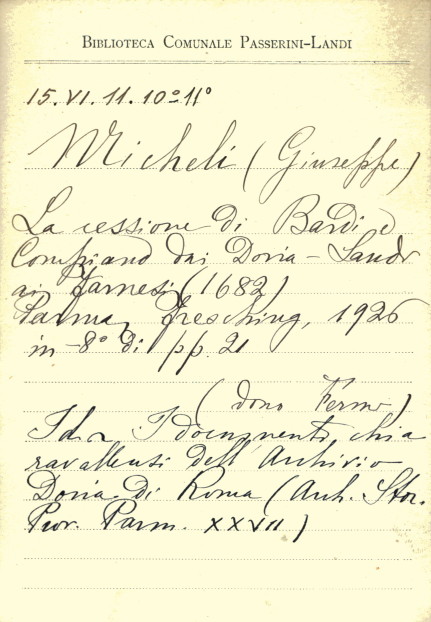 BIBLIOTECA COMUNALE PASSERINI-LANDI
15.VI.11.10º 11º
Micheli (Giuseppe)
La cessione di Bardi e
Compiano dai Doria-Landi
ai Farnesi (1682)
Parma, Fresching, 1926
in-8º di pp. 21
(dono Fermi)
Id. I documenti chia
ravallensi dell'Archivio
Doria di Roma (Arch. Stor.
Prov. Parm. XXVII)